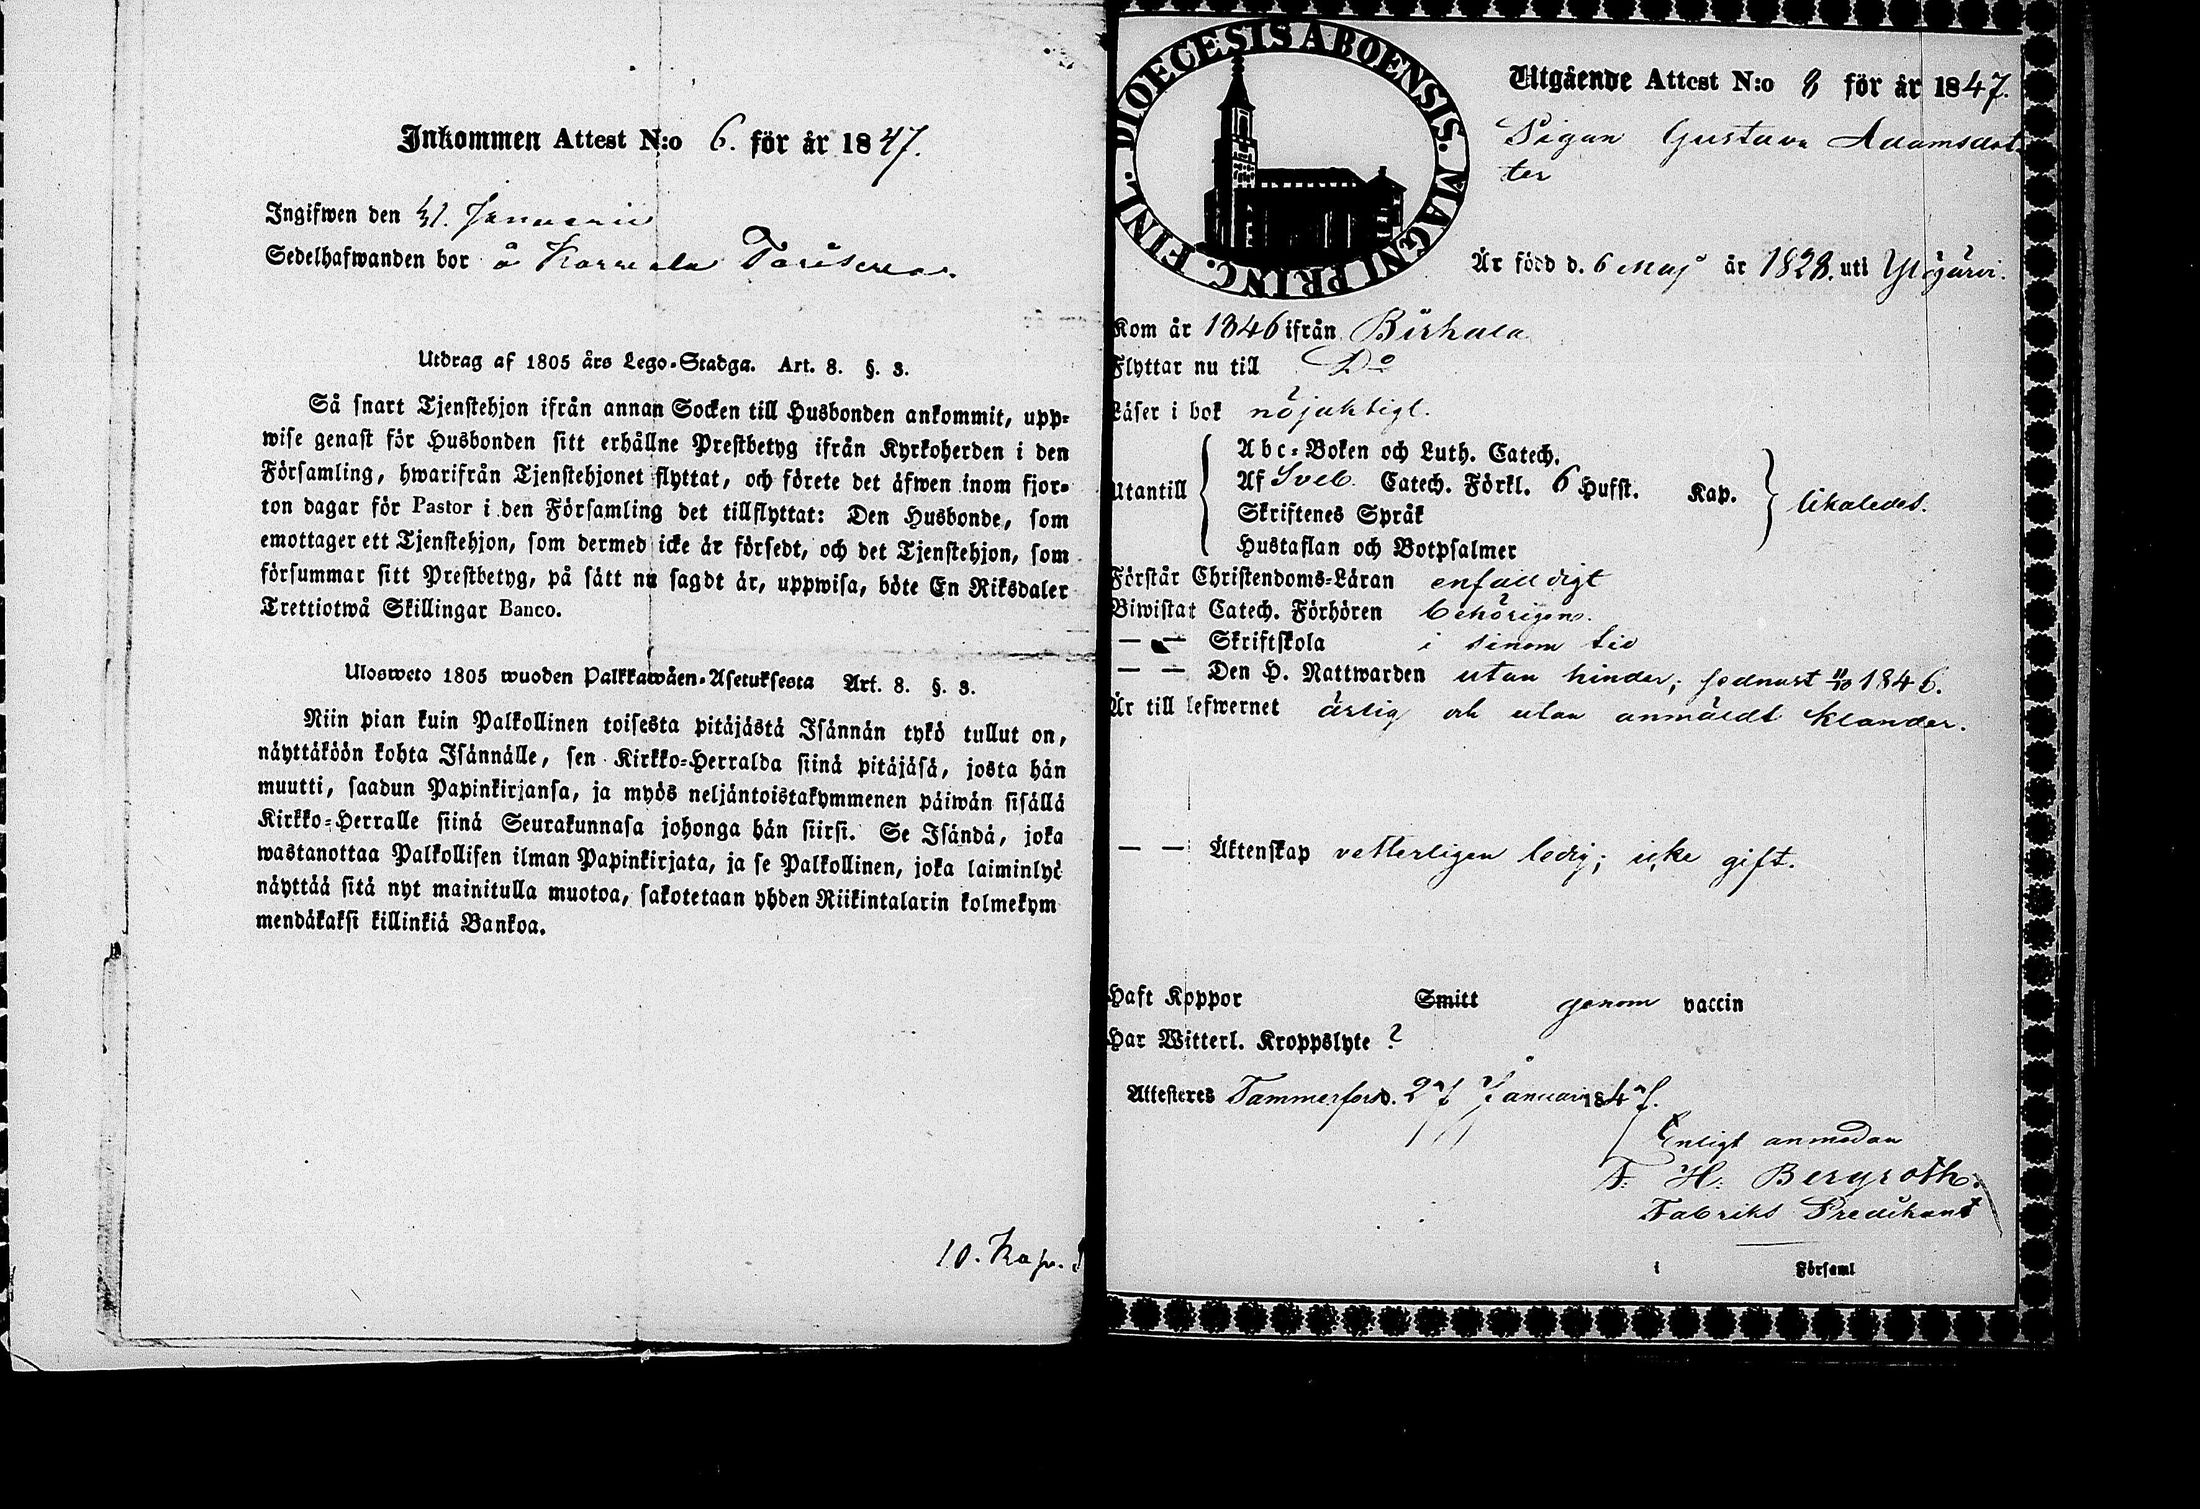 Inkommen Attest N:o 6. för år 1847.
Ingifwen den 31. Januarii
Sedelhafwanden bor å Karvala
Utdrag af 1805 års Lego-Stadga. Art. 8. §. 3.
Så snart Tjenstehjon ifrån annan Socken till Husbonden ankommit, upp-
wise genast för Husbonden sitt erhållne Prestbetyg ifrån Kyrkoherden i den
Församling, hwarifrån Tjenstehjonet flyttat, och förete det äfwen inom fjor-
ton dagar för Pastor i den Församling det tillflyttat: Den Husbonde, som
emottager ett Tjenstehjon, som dermed icke är försedt, och det Tjenstehjon, som
försummar sitt Prestbetyg, på sätt nu sagdt är, uppwisa, böte En Riksdaler
Trettiotwå Skillingar Banco.
Ulosweto 1805 wuoden Palkkawäen-Asetuksesta Art. 8. §. 3.
Niin pian kuin Palkollinen toisesta pitäjästä Isännän tykö tullut on,
näyttäköön kohta Isännälle, sen Kirkko-Herralda siinä pitäjäsä, josta hän
muutti, saadun Papinkirjansa, ja myös neljäntoistakymmenen päiwän sisällä
Kirkko-Herralle siinä Seurakunnasa johonga hän siirsi. Se Isändä, joka
wastanottaa Palkollisen ilman Papinkirjata, ja se Palkollinen, joka laiminlyö
näyttää sitä nyt mainitulla muotoa, sakotetaan yhden Riikintalarin kolmekym
mendäkaksi killinkiä Bankoa.
10. Kap.
DIOECESIS ABOENSIS. MAGNI PRINC. FINL.
Utgående Attest N:o 8 för år 1847.
Pigan Gustava Adamsdot
ter
Är född d. 6 Maj år 1828. uti Ylöjärvi.
Kom år 1846 ifrån Birkala
Flyttar nu till Do
Läser i bok nöjaktigt.
Utantill
Abc-Boken och Luth. Catech.
Af Sveb. Catech. Förkl. 6 Hufst. Kap.
Skriftenes Språk
Hustaflan och Botpsalmer
likaledes.
Förstår Christendoms-Läran enfaldigt
Biwistat Catech. Förhören behörigen.
— — Skriftskola i sinom tid
— — Den H. Nattwarden utan hinder; sednast 11/10 1846.
Är till lefwernet ärlig och utan anmäldt klander.
— — Äktenskap vetterligen ledig; icke gift.
Haft Koppor Smitt genom vaccin
Har Witterl. Kroppslyte ?
Attesteres Tammerfors d. 27 Januari 1847.
Enligt anmodan
F. H. Bergroth.
Fabriks Predikant
i Församl